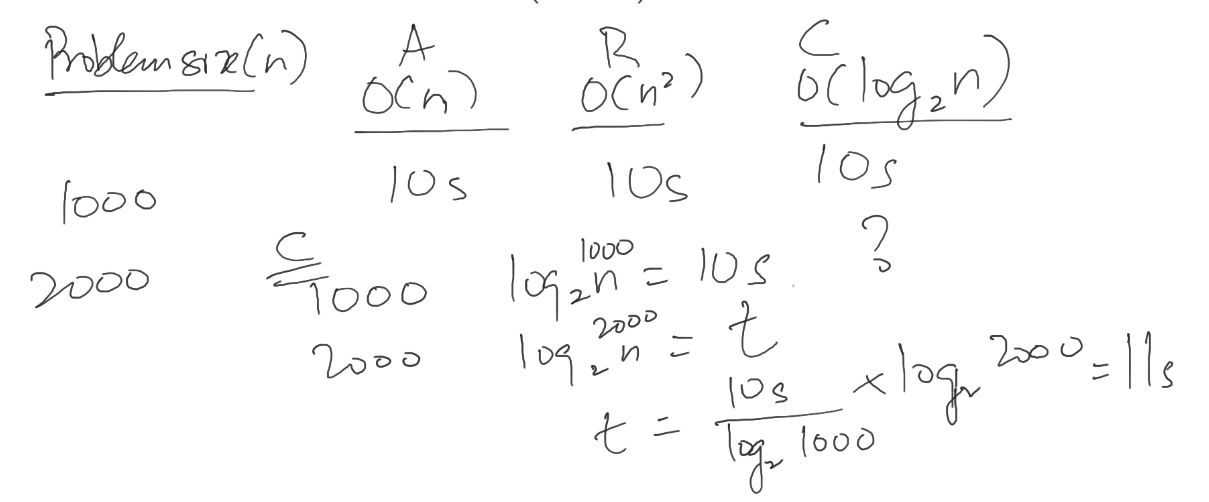 Problem size(n) A R C
O(n) O(n²) O(log₂n)
1000 10s 10s 10s
2000 ?
C
1000 log₂n 1000 = 10s
2000 log₂n 2000 = t
t = 10s / log₂ 1000 × log₂ 2000 = 11s